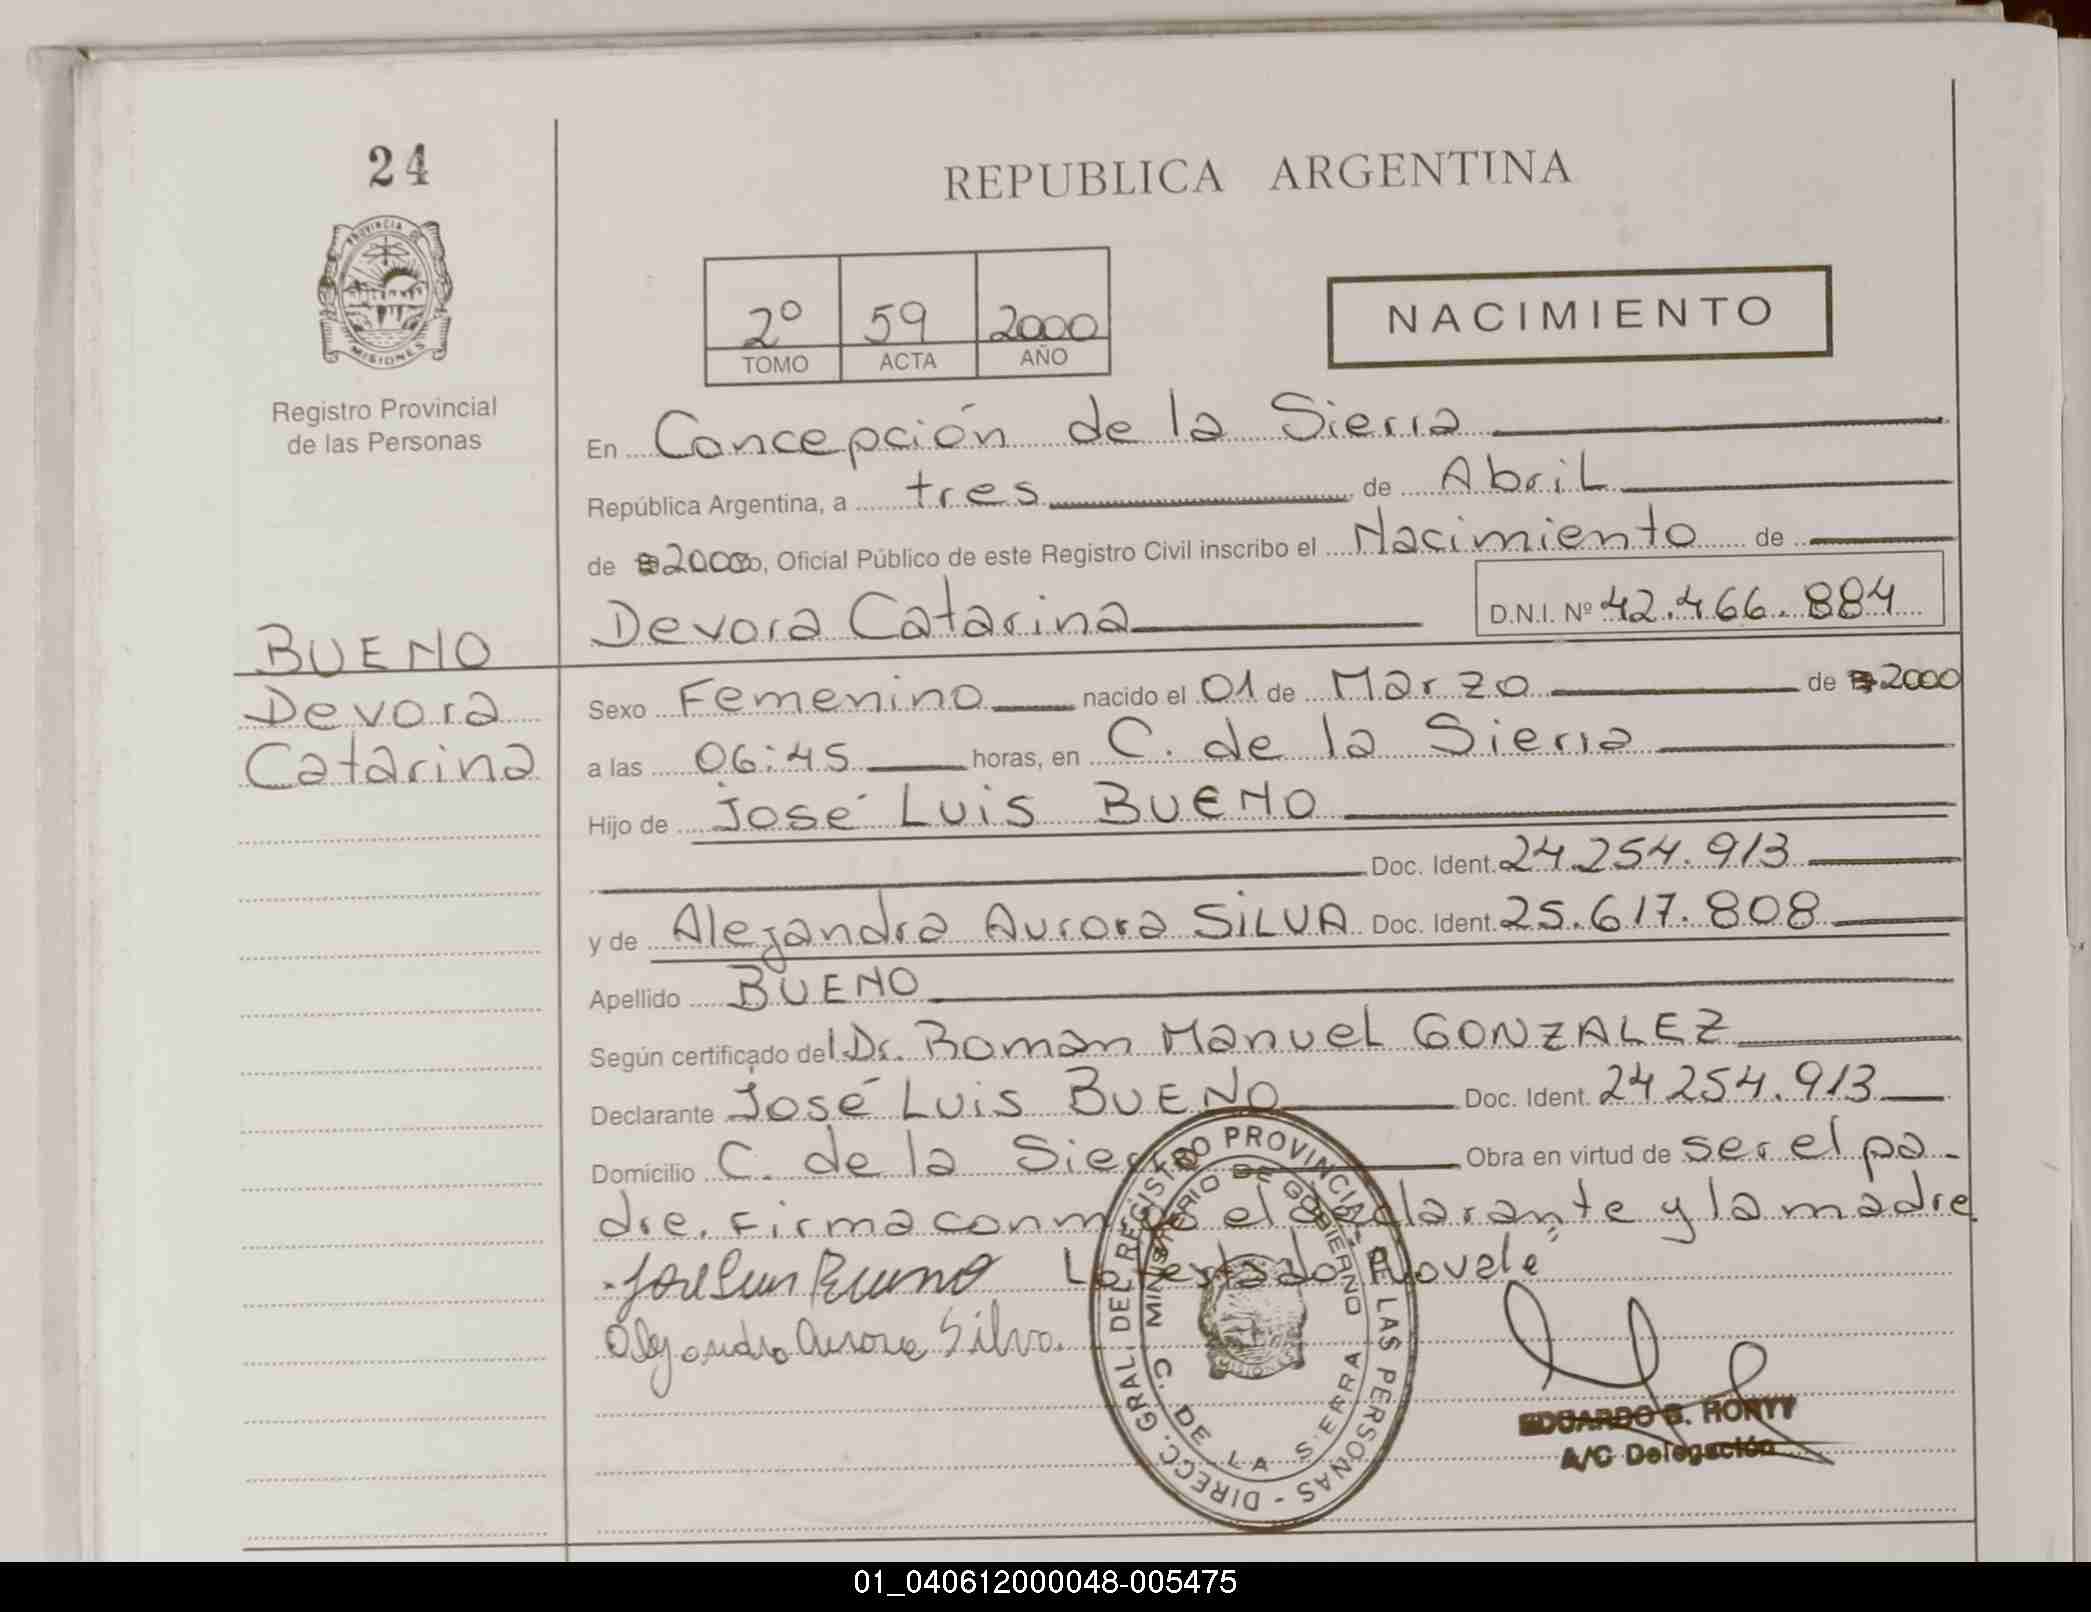 24
REPUBLICA ARGENTINA
PROVINCIA DE
MISIONES
Registro Provincial
de las Personas
2º 59 2000
TOMO ACTA AÑO
NACIMIENTO
En Concepción de la Sierra
República Argentina, a tres de Abril
de 2000, Oficial Público de este Registro Civil inscribo el Nacimiento de
Devora Catarina D.N.I. Nº 42.466.884
BUENO
Devora
Catarina
Sexo Femenino nacido el 01 de Marzo de 2000
a las 06:45 horas, en C. de la Sierra
Hijo de José Luis BUENO
Doc. Ident. 24.254.913
y de Alejandra Aurora SILVA Doc. Ident. 25.617.808
Apellido BUENO
Según certificado del Dr. Roman Manuel GONZALEZ
Declarante José Luis BUENO Doc. Ident. 24 254.913
Domicilio C. de la Sierra Obra en virtud de ser el pa-
dre. Firma conmigo el declarante y la madre
Jose Luis Bueno Lo testado "No vale"
Alejandra Aurora Silva.
DIRECC. GRAL. DEL REGISTRO PROVINCIAL DE LAS PERSONAS -
MINISTERIO DE GOBIERNO
C. DE LA SIERRA
MISIONES
EDUARDO
A/C Delegación
01_040612000048-005475